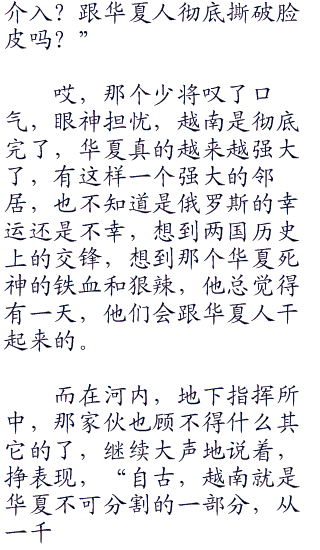 介入？跟华夏人彻底撕破脸
皮吗？”
哎，那个少将叹了口
气，眼神担忧，越南是彻底
完了，华夏真的越来越强大
了，有这样一个强大的邻
居，也不知道是俄罗斯的幸
运还是不幸，想到两国历史
上的交锋，想到那个华夏死
神的铁血和狠辣，他总觉得
有一天，他们会跟华夏人干
起来的。
而在河内，地下指挥所
中，那家伙也顾不得什么其
它的了，继续大声地说着，
挣表现，“自古，越南就是
华夏不可分割的一部分，从
一千